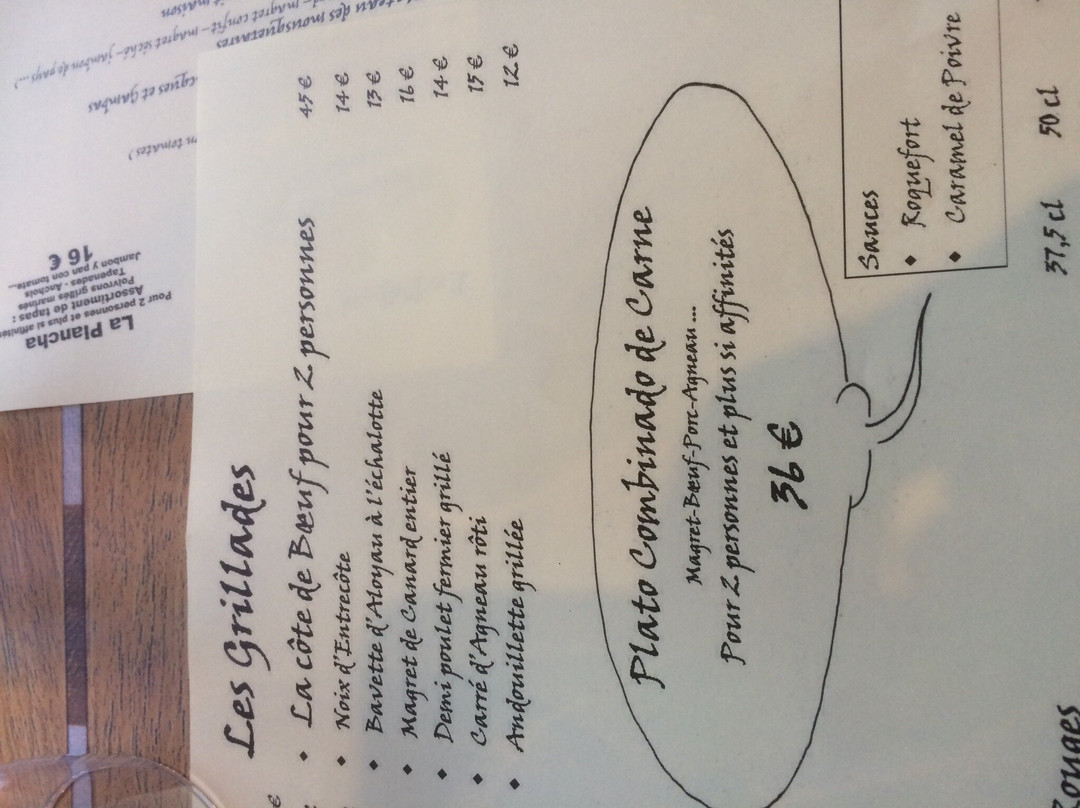 Les Grillades
• La côte de Bœuf pour 2 personnes 45 €
• Noix d'Entrecôte 14 €
• Bavette d'Aloyau à l'échalotte 13 €
• Magret de Canard entier 16 €
• Demi poulet fermier grillé 14 €
• Carré d'Agneau rôti 15 €
• Andouillette grillée 12 €
Plato Combinado de Carne
Magret-Bœuf-Porc-Agneau ...
Pour 2 personnes et plus si affinités
36 €
Sauces
• Roquefort
• Caramel de Poivre
37,5 cl 50 cl
La Plancha
Pour 2 personnes et plus si
Assortiment de tapas :
Poivrons grillés marinés
Tapenades - Anchois
Jambon y pan con tomate...
16 €
tomates)
et Gambas
magret séché- jambon de pays...)
magret confit-
des mousquetaires
maison